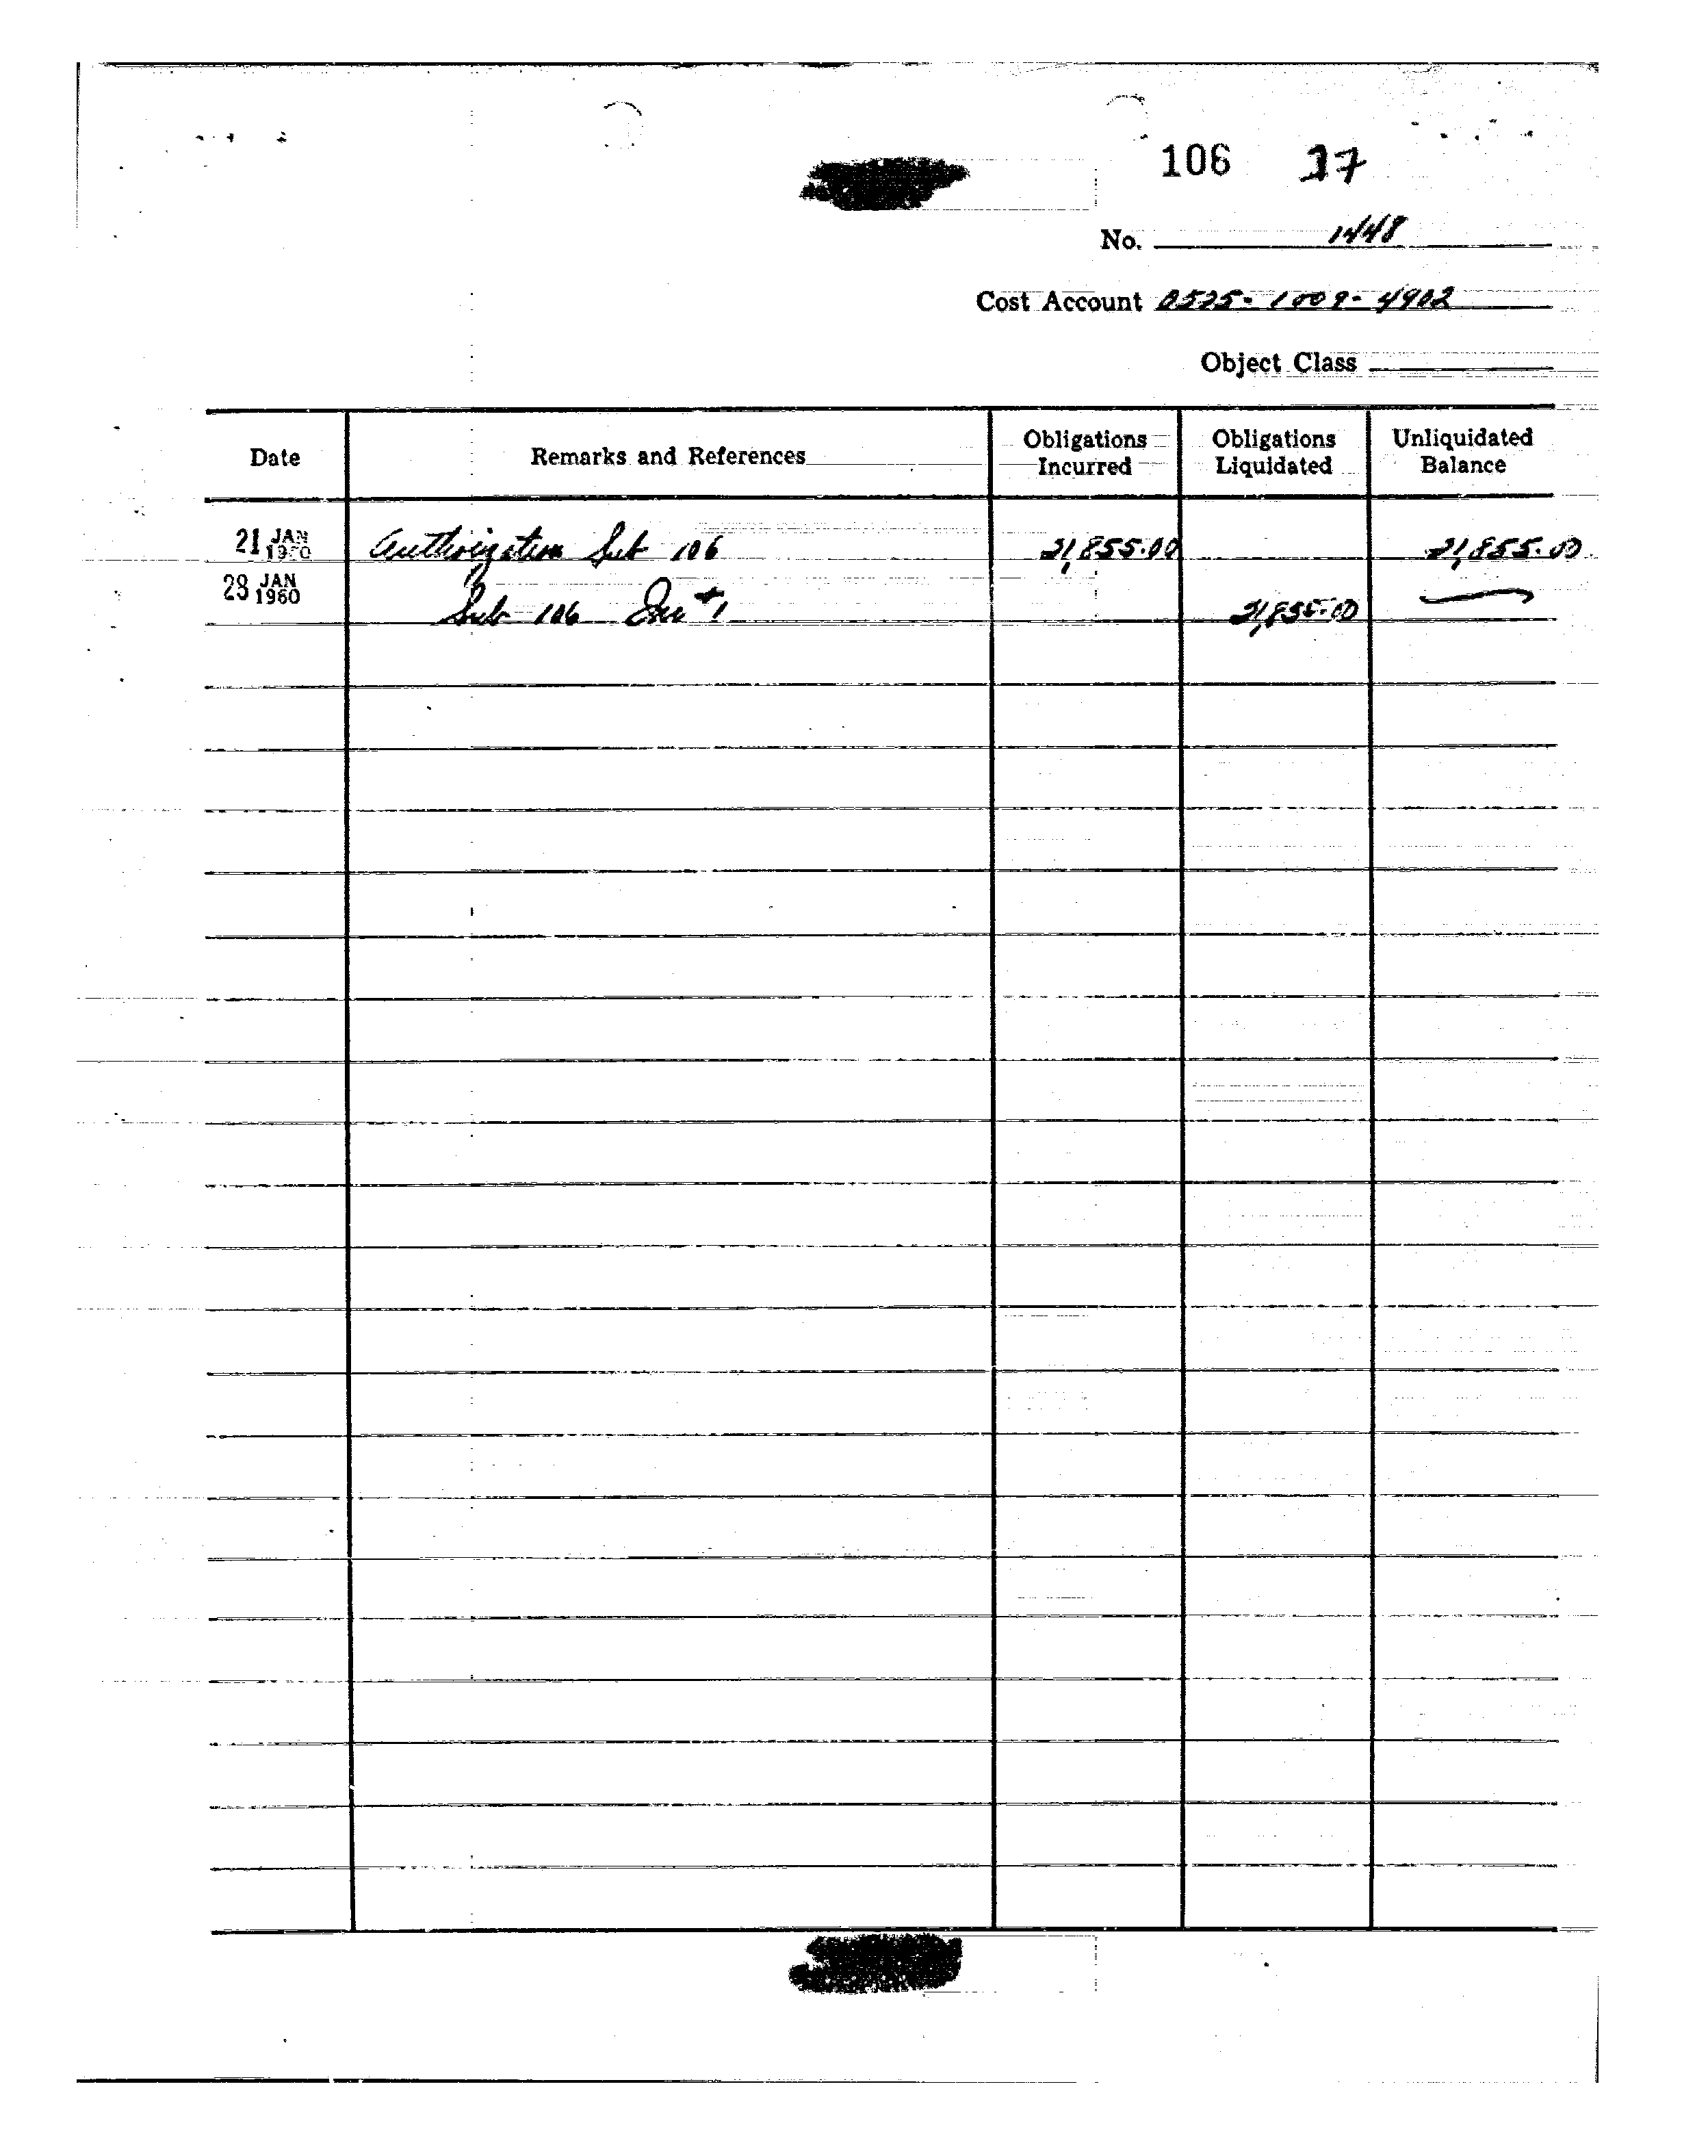 106 37
No. 1448
Cost Account 0525-1009-4902
Object Class
Date Remarks and References Obligations Incurred Obligations Liquidated Unliquidated Balance
21 JAN 1960 Authorization Sub 106 21,855.00 21,855.00
28 JAN 1960 Sub 106 Inv #1 21,855.00